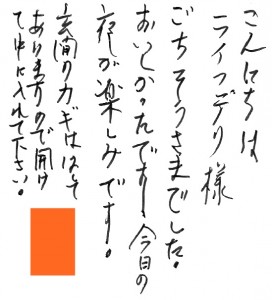 こんにちは
ライフデリ様
ごちそうさまでした。
おいしかったです!、今日の
夜が楽しみです!
玄関のカギははずして
ありますので開け
て中に入れて下さい!